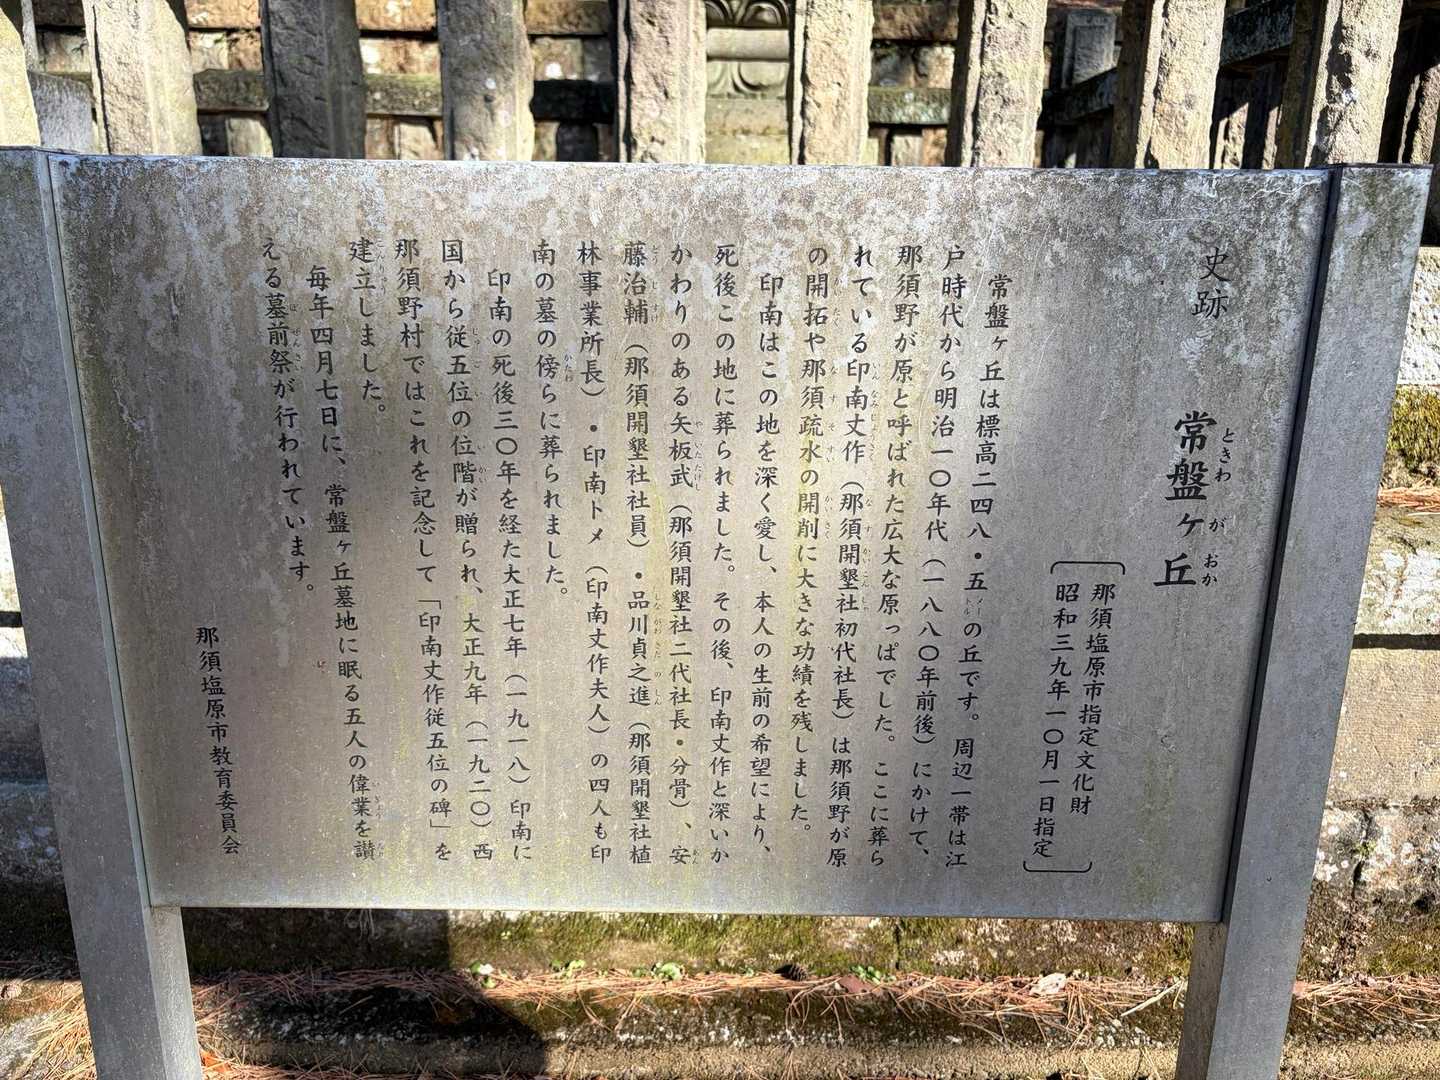 史跡 常盤ヶ丘
ときわ が おか
那須塩原市指定文化財
昭和三九年一〇月一日指定
常盤ヶ丘は標高二四八・五メートルの丘です。周辺一帯は江
戸時代から明治一〇年代（一八八〇年前後）にかけて、
那須野が原と呼ばれた広大な原っぱでした。ここに葬ら
れている印南丈作（那須開墾社初代社長）は那須野が原
の開拓や那須疏水の開削に大きな功績を残しました。
印南はこの地を深く愛し、本人の生前の希望により、
死後この地に葬られました。その後、印南丈作と深いか
かわりのある矢板武（那須開墾社二代社長・分骨）、安
藤治輔（那須開墾社社員）・品川貞之進（那須開墾社植
林事業所長）・印南トメ（印南丈作夫人）の四人も印
南の墓の傍らに葬られました。
印南の死後三〇年を経た大正七年（一九一八）印南に
国から従五位の位階が贈られ、大正九年（一九二〇）西
那須野村ではこれを記念して「印南丈作従五位の碑」を
建立しました。
毎年四月七日に、常盤ヶ丘墓地に眠る五人の偉業を讃
える墓前祭が行われています。
那須塩原市教育委員会